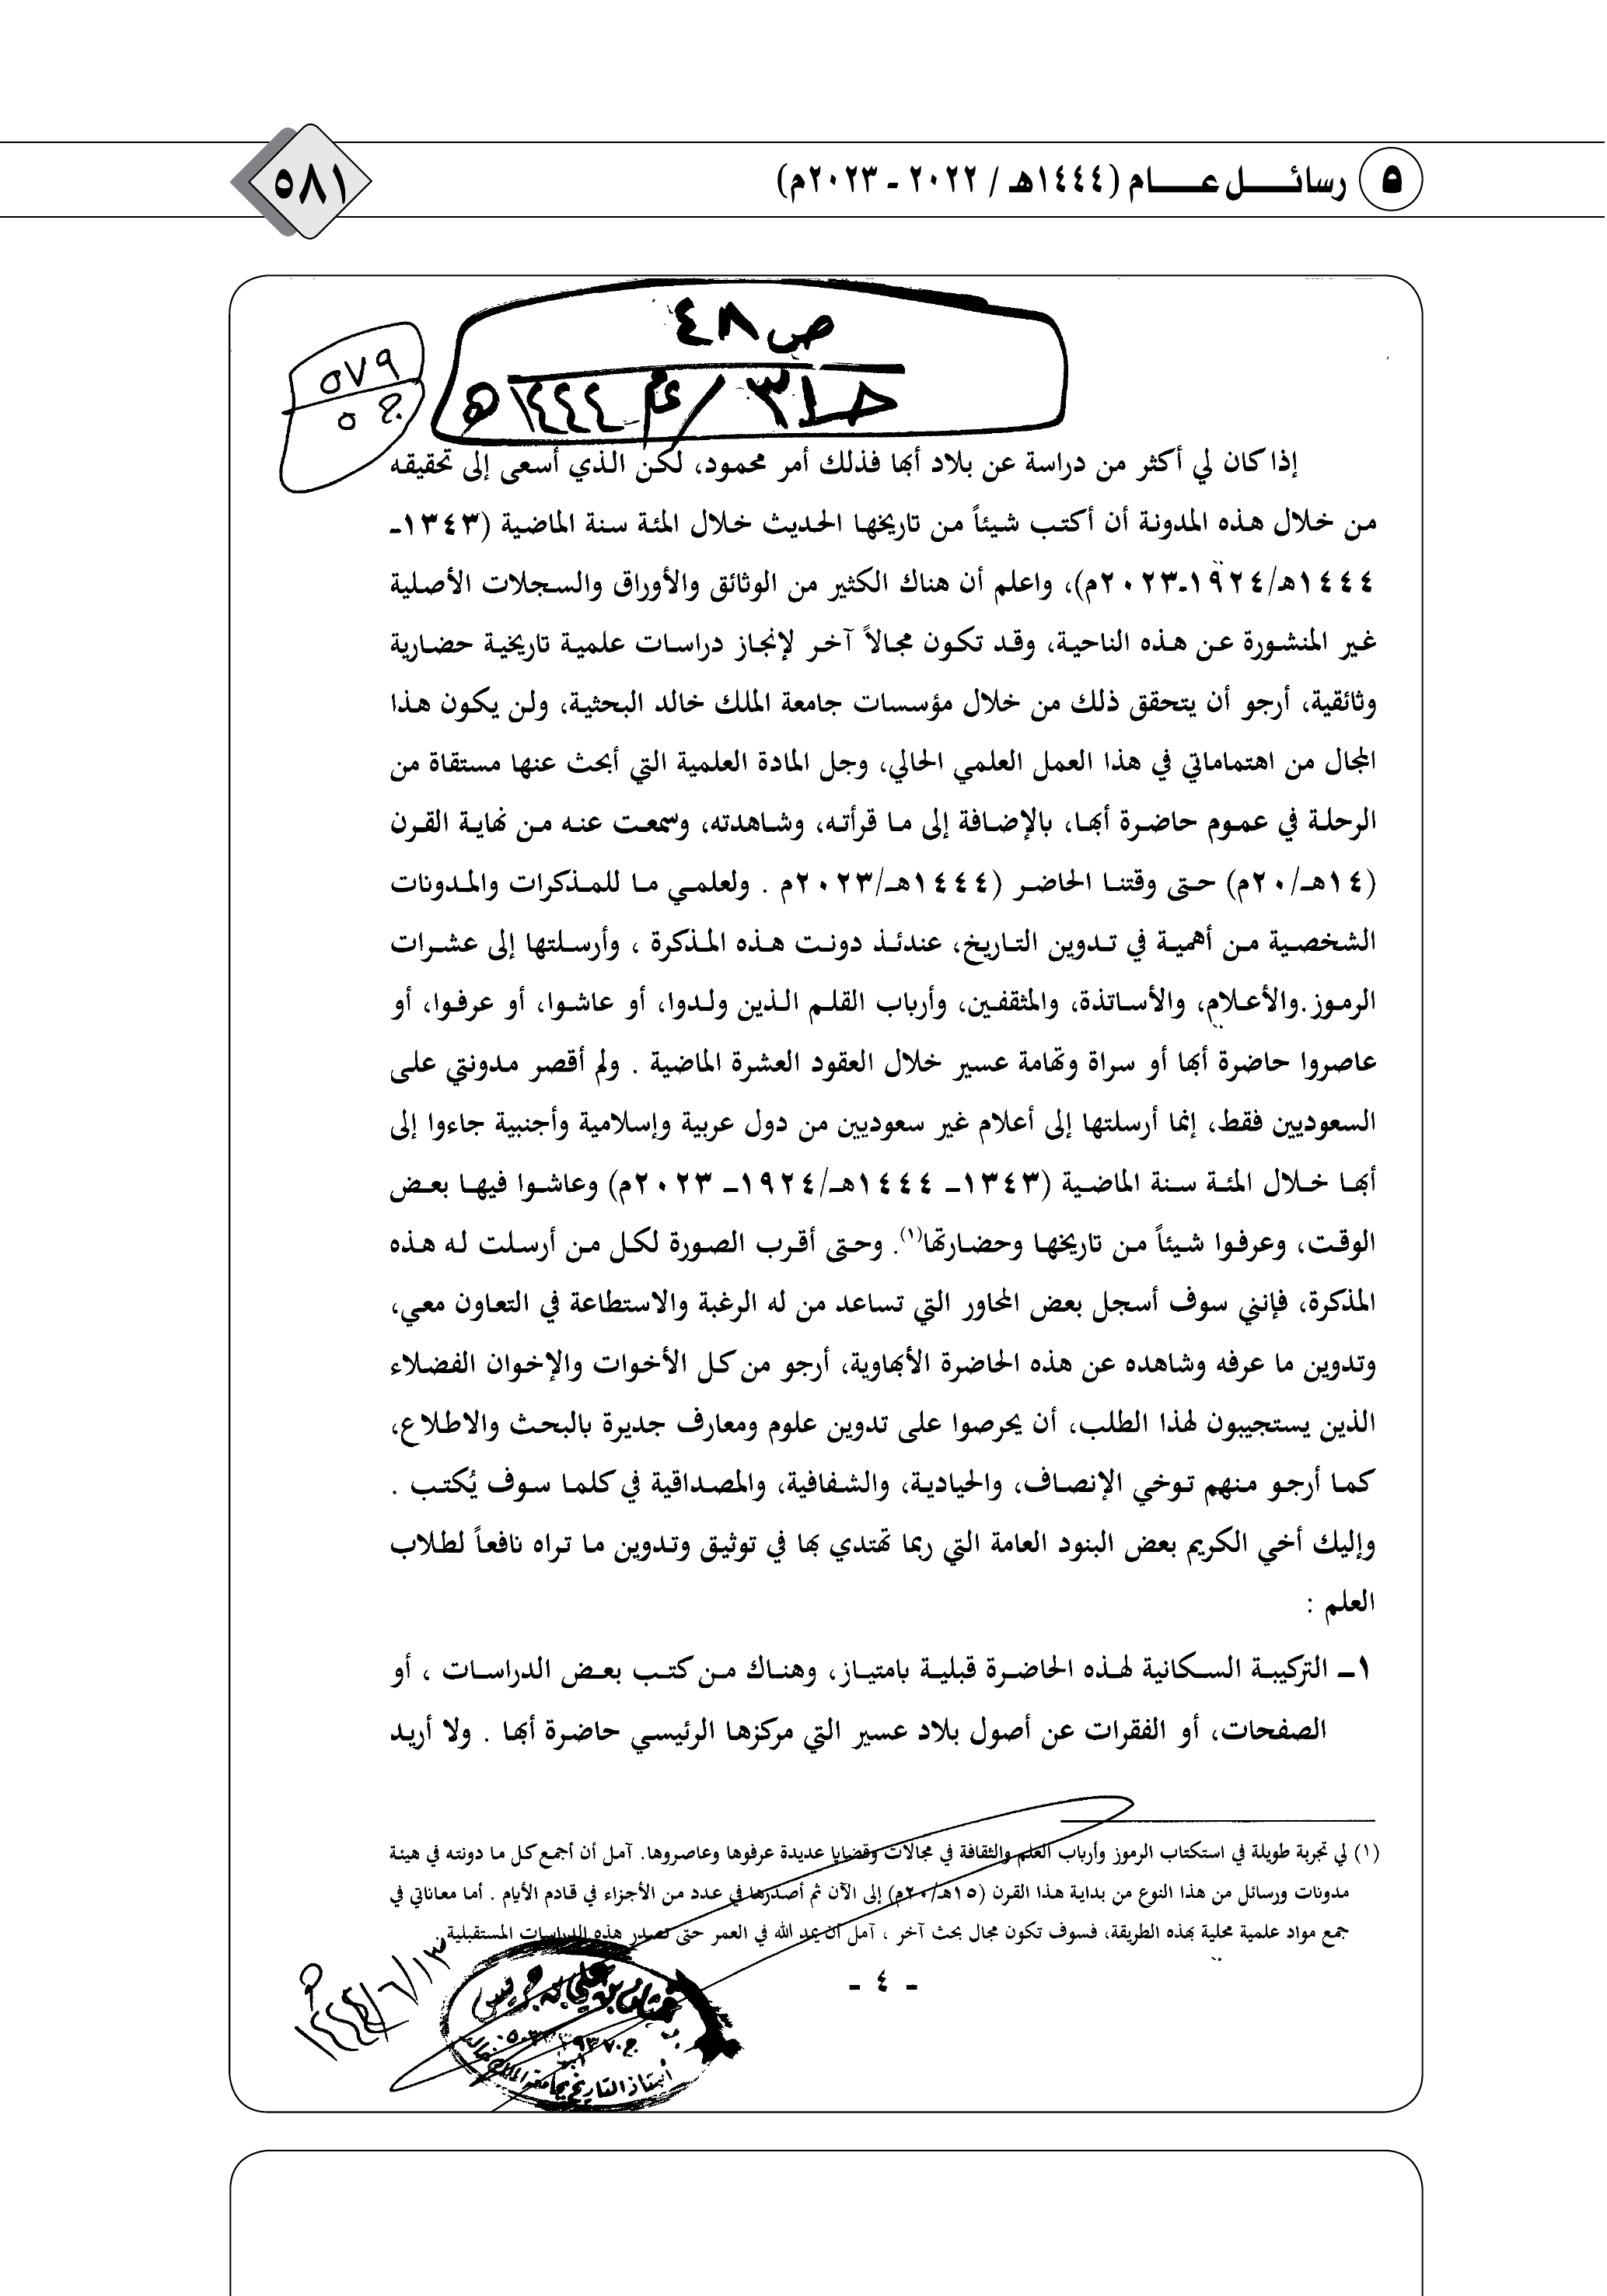 ٥ رسائل عام (١٤٤٤هـ / ٢٠٢٢ - ٢٠٢٣م)
٥٨١
ص ٤٨
٥٧٩
ج ٥
إذا كان لي أكثر من دراسة عن بلاد أبها فذلك أمر محمود، لكن الذي أسعى إلى تحقيقه
من خلال هذه المدونة أن أكتب شيئاً من تاريخها الحديث خلال المئة سنة الماضية (١٣٤٣ـ
١٤٤٤هـ/١٩٢٤ـ٢٠٢٣م)، واعلم أن هناك الكثير من الوثائق والأوراق والسجلات الأصلية
غير المنشورة عن هذه الناحية، وقد تكون مجالاً آخر لإنجاز دراسات علمية تاريخية حضارية
وثائقية، أرجو أن يتحقق ذلك من خلال مؤسسات جامعة الملك خالد البحثية، ولن يكون هذا
المجال من اهتماماتي في هذا العمل العلمي الحالي، وجل المادة العلمية التي أبحث عنها مستقاة من
الرحلة في عموم حاضرة أبها، بالإضافة إلى ما قرأته، وشاهدته، وسمعت عنه من نهاية القرن
(١٤هـ/٢٠م) حتى وقتنا الحاضر (١٤٤٤هـ/٢٠٢٣م . ولعلمي ما للمذكرات والمدونات
الشخصية من أهمية في تدوين التاريخ، عندئذ دونت هذه المذكرة ، وأرسلتها إلى عشرات
الرموز.والأعلام، والأساتذة، والمثقفين، وأرباب القلم الذين ولدوا، أو عاشوا، أو عرفوا، أو
عاصروا حاضرة أبها أو سراة وتهامة عسير خلال العقود العشرة الماضية . ولم أقصر مدونتي على
السعوديين فقط، إنما أرسلتها إلى أعلام غير سعوديين من دول عربية وإسلامية وأجنبية جاءوا إلى
أبها خلال المئة سنة الماضية (١٣٤٣ـ ١٤٤٤هـ/١٩٢٤ـ ٢٠٢٣م) وعاشوا فيها بعض
الوقت، وعرفوا شيئاً من تاريخها وحضارتها(١). وحتى أقرب الصورة لكل من أرسلت له هذه
المذكرة، فإنني سوف أسجل بعض المحاور التي تساعد من له الرغبة والاستطاعة في التعاون معي،
وتدوين ما عرفه وشاهده عن هذه الحاضرة الأبهاوية، أرجو من كل الأخوات والإخوان الفضلاء
الذين يستجيبون لهذا الطلب، أن يحرصوا على تدوين علوم ومعارف جديرة بالبحث والاطلاع،
كما أرجو منهم توخي الإنصاف، والحيادية، والشفافية، والمصداقية في كلما سوف يُكتب .
وإليك أخي الكريم بعض البنود العامة التي ربما تهتدي بها في توثيق وتدوين ما تراه نافعاً لطلاب
العلم :
١ـ التركيبة السكانية لهذه الحاضرة قبلية بامتياز، وهناك من كتب بعض الدراسات ، أو
الصفحات، أو الفقرات عن أصول بلاد عسير التي مركزها الرئيسي حاضرة أبها . ولا أريد
(١) لي تجربة طويلة في استكتاب الرموز وأرباب العلم والثقافة في مجالات وقضايا عديدة عرفوها وعاصروها. آمل أن أجمع كل ما دونته في هيئة
مدونات ورسائل من هذا النوع من بداية هذا القرن (١٥هـ/٢٠م) إلى الآن ثم أصدرها في عدد من الأجزاء في قادم الأيام . أما معاناتي في
جمع مواد علمية محلية بهذه الطريقة، فسوف تكون مجال بحث آخر ، آمل أن يمد الله في العمر حتى تصدر هذه الدراسات المستقبلية
- ٤ -
١٤٤٤/٦/١٣هـ
أستاذ التاريخ بجامعة الملك خالد